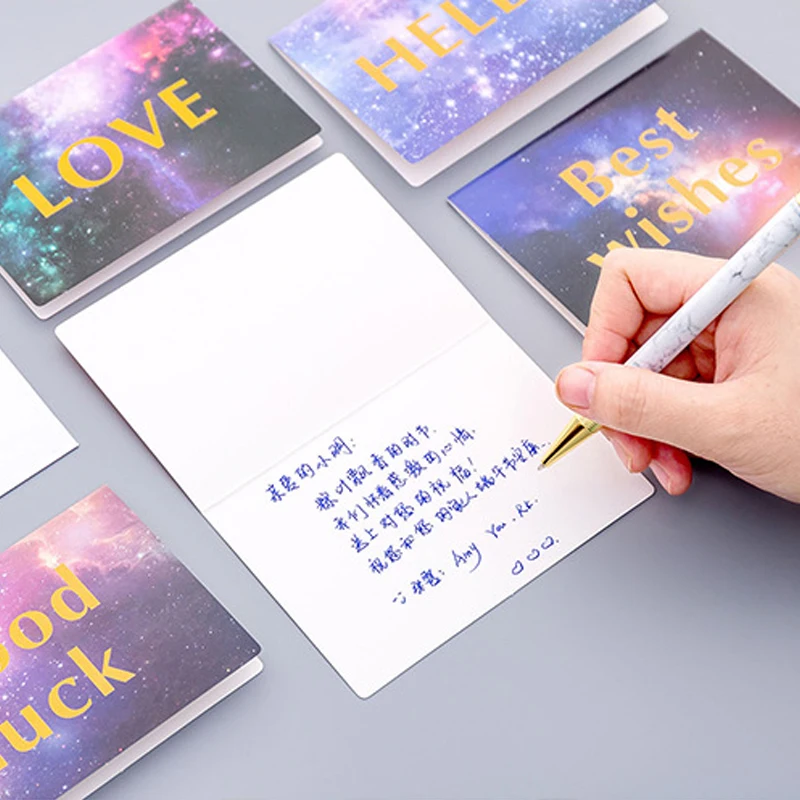 LOVE
HELL
Best
wishes
亲爱的小明:
粽叶飘香的时节.
我们怀着感激的心情.
送上对您的祝福!
祝您和您的家人端午节安康.
Amy You. Rt.
ood
luck